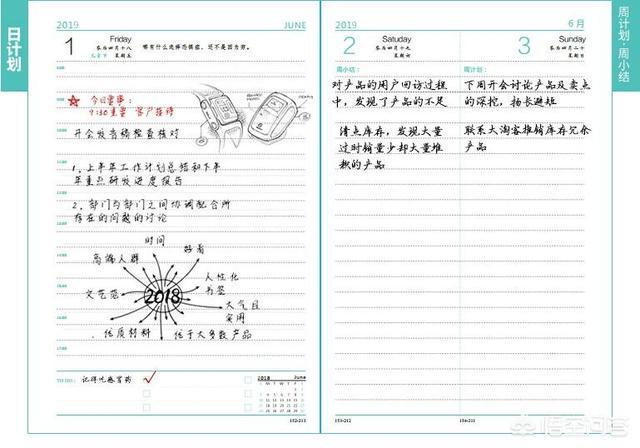 日计划
2019
JUNE
1
Friday
农历四月十八
儿童节 星期五
哪有什么选择恐惧症，还不是因为穷。
今日要事：
9:30重要 客户接待
开会发言稿检查核对
1、上半年工作计划总结和下半
年重点研发进度报告
2、部门与部门之间协调配合所
存在的问题的讨论
时间
好看
高端人群
人性化
书签
文艺范
2018
大气且
实用
优质材料
优于大多数产品
TO DO:
记得吃感冒药
2018 June
152-213
2019
6月
2
Saturday
农历四月十九
星期六
3
Sunday
农历四月二十
星期日
周小结：
对产品的用户回访过程
中，发现了产品的不足
清点库存，发现大量
过时销量少却大量堆
积的产品
周计划：
下周开会讨论产品及卖点
的深挖，扬长避短
联系大淘客推销库存冗余
产品
153-212
154-211
周计划·周小结
悟空问答